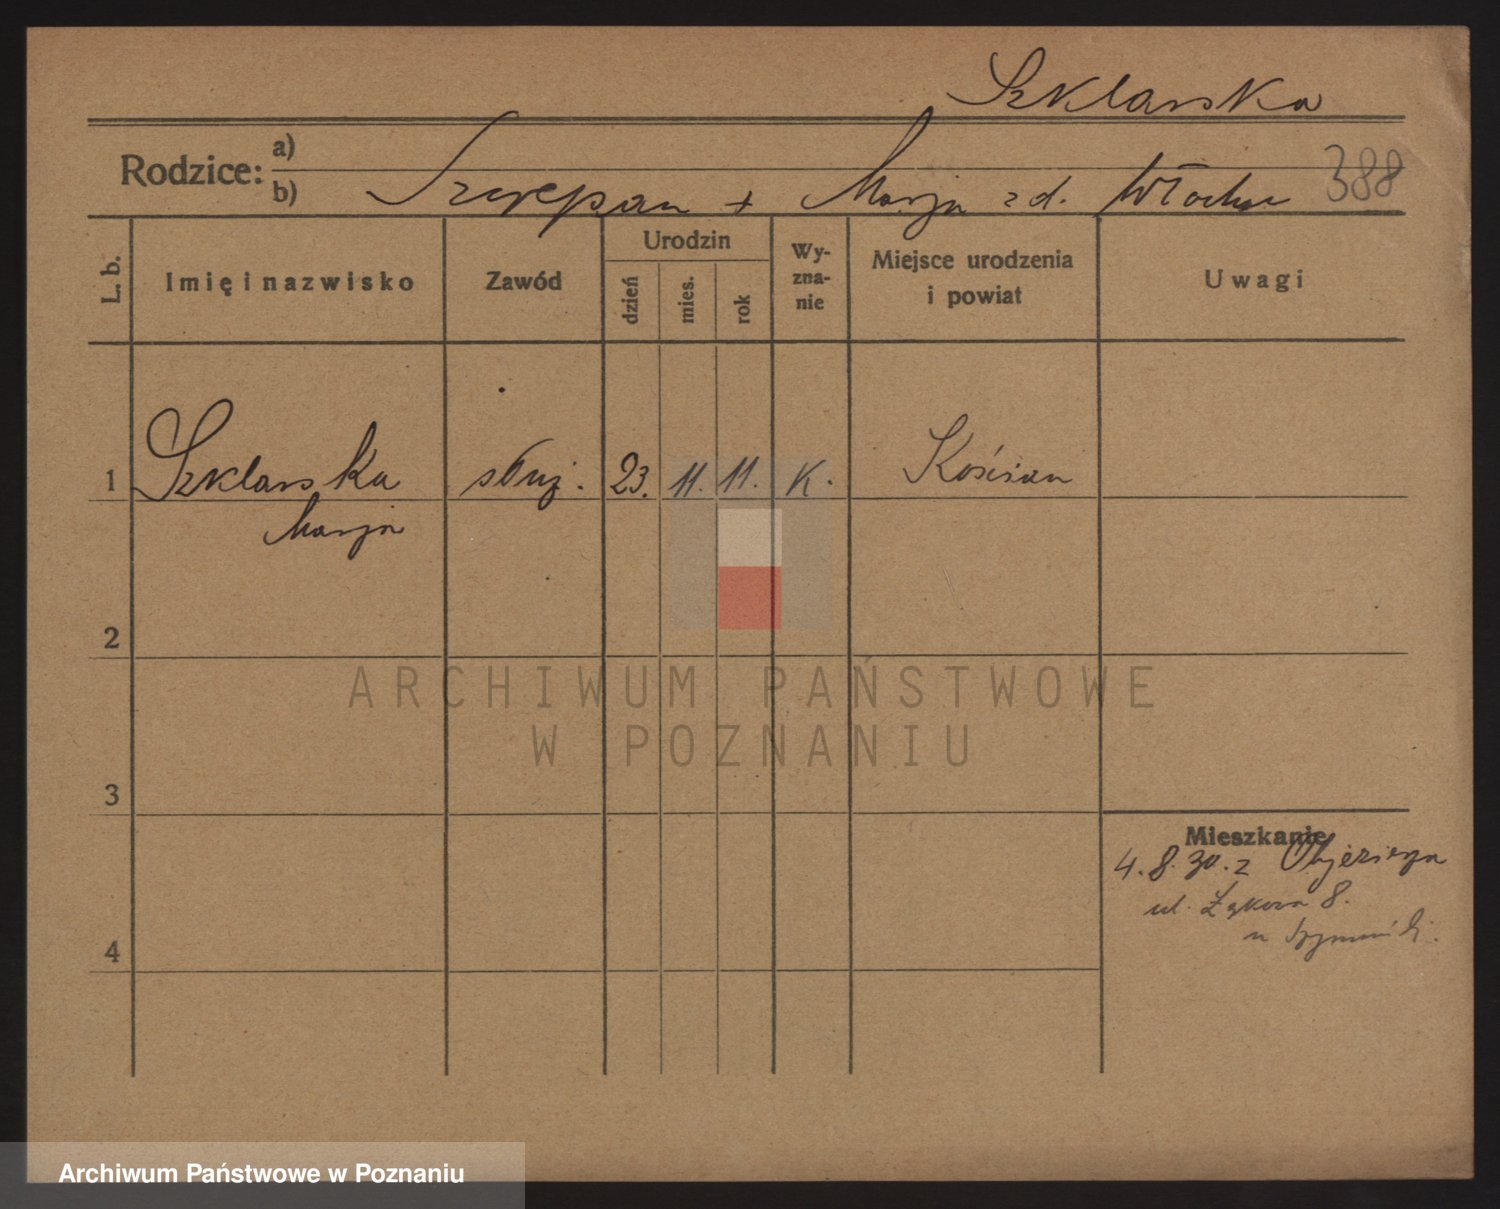 Szklarska
Rodzice: a)
b) Szczepan + Marja zd. Włoch 388
L. b. Imię i nazwisko Zawód Urodzin dzień mies. rok Wy-zna-nie Miejsce urodzenia i powiat Uwagi
1 Szklarska służ. 23. 11. 11. K. Kościan
Marja
2
ARCHIWUM PAŃSTWOWE
W POZNANIU
3
Mieszkanie
4. 8. 30. z
ul. Łąkowa 8.
4
Archiwum Państwowe w Poznaniu